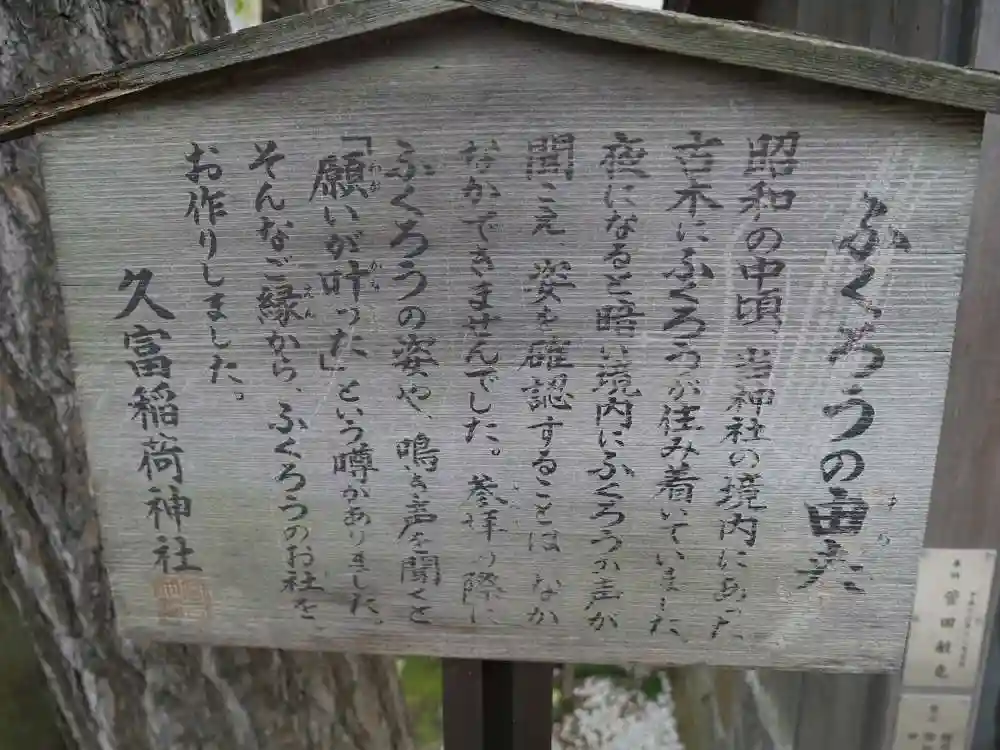 ふくろうの由来
昭和の中頃、当神社の境内にあった
古木にふくろうが住み着いていました。
夜になると暗い境内にふくろうの声が
聞こえ、姿を確認することは、なか
なかできませんでした。参拝の際に
ふくろうの姿や、鳴き声を聞くと
「願いが叶った」という噂がありました。
そんなご縁から、ふくろうのお社を
お作りしました。
久富稲荷神社
菅田敏色